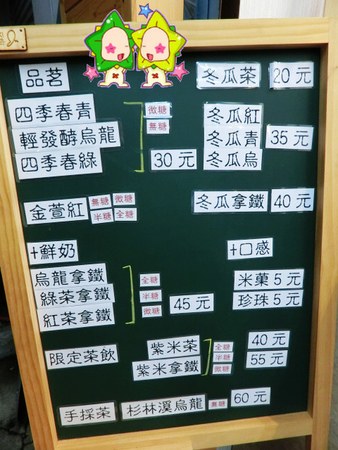 品茗
冬瓜茶 20元
四季春青 微糖
輕發酵烏龍 無糖
四季春綠 30元
冬瓜紅
冬瓜青 35元
冬瓜烏
金萱紅 無糖 微糖 半糖 全糖
冬瓜拿鐵 40元
+鮮奶
+口感
烏龍拿鐵 全糖
綠茶拿鐵 半糖 45元
紅茶拿鐵 微糖
米菓5元
珍珠5元
限定茶飲
紫米茶 全糖 40元
紫米拿鐵 半糖 微糖 55元
手採茶 杉林溪烏龍 無糖 60元